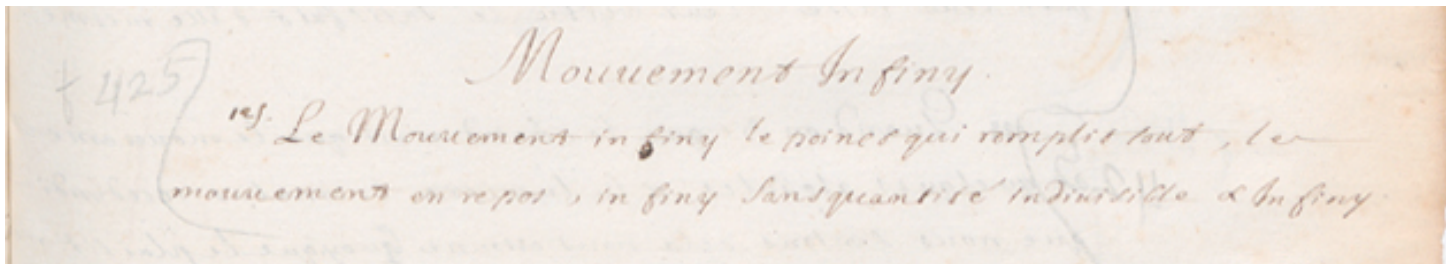 Mouuement Infiny.
f 425
res. Le Mouuement infiny le poinct qui remplit tout, le
mouuement en repos, infiny sans quantité indiuisible & Infiny